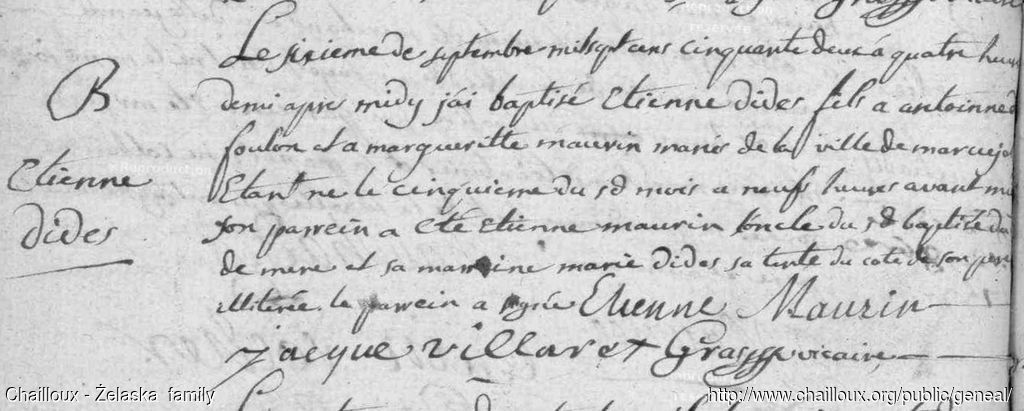 B
Etienne
dides
Le sixieme de septembre mil sept cens cinquante deux á quatre heur
demi apres midy j'ai baptisé Etienne dides fils a antoinne d
foulon et a margueritte maurin mariés de la ville de maruejo
Etant ne le cinquieme du sd mois a neufs heures avant mi
son parrein a eté Etienne maurin loncle du sd baptisé du
de mere et sa marreine marie dides sa tente du coté de son pere
illiterée. le parrein a signée Etienne Maurin
jacque villaret Gras vicaire
Chailloux - Żelaska family
http://www.chailloux.org/public/geneal/